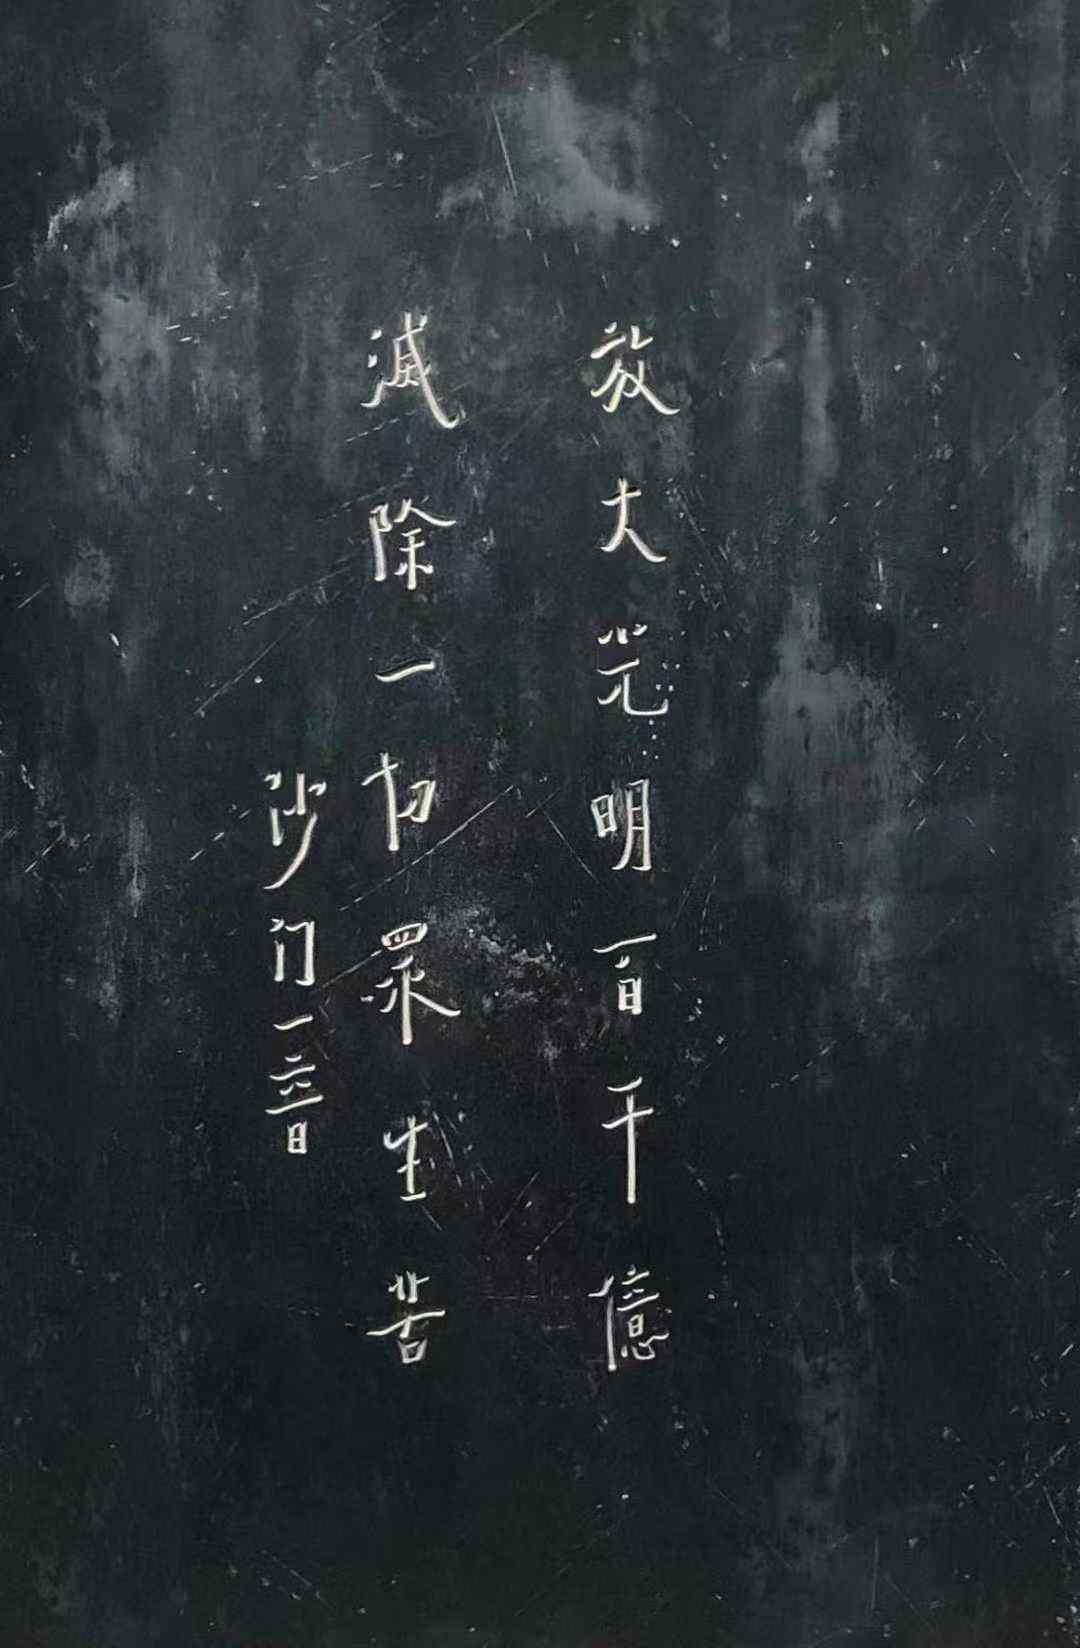 放大光明百千億
滅除一切眾生苦
沙门一音